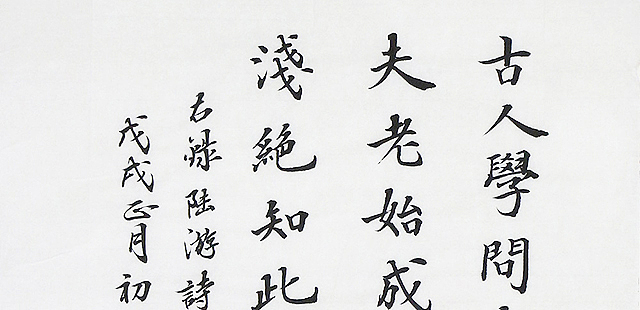 古人學問
夫老始成
淺絕知此
右錄陸游詩
戊戌正月初